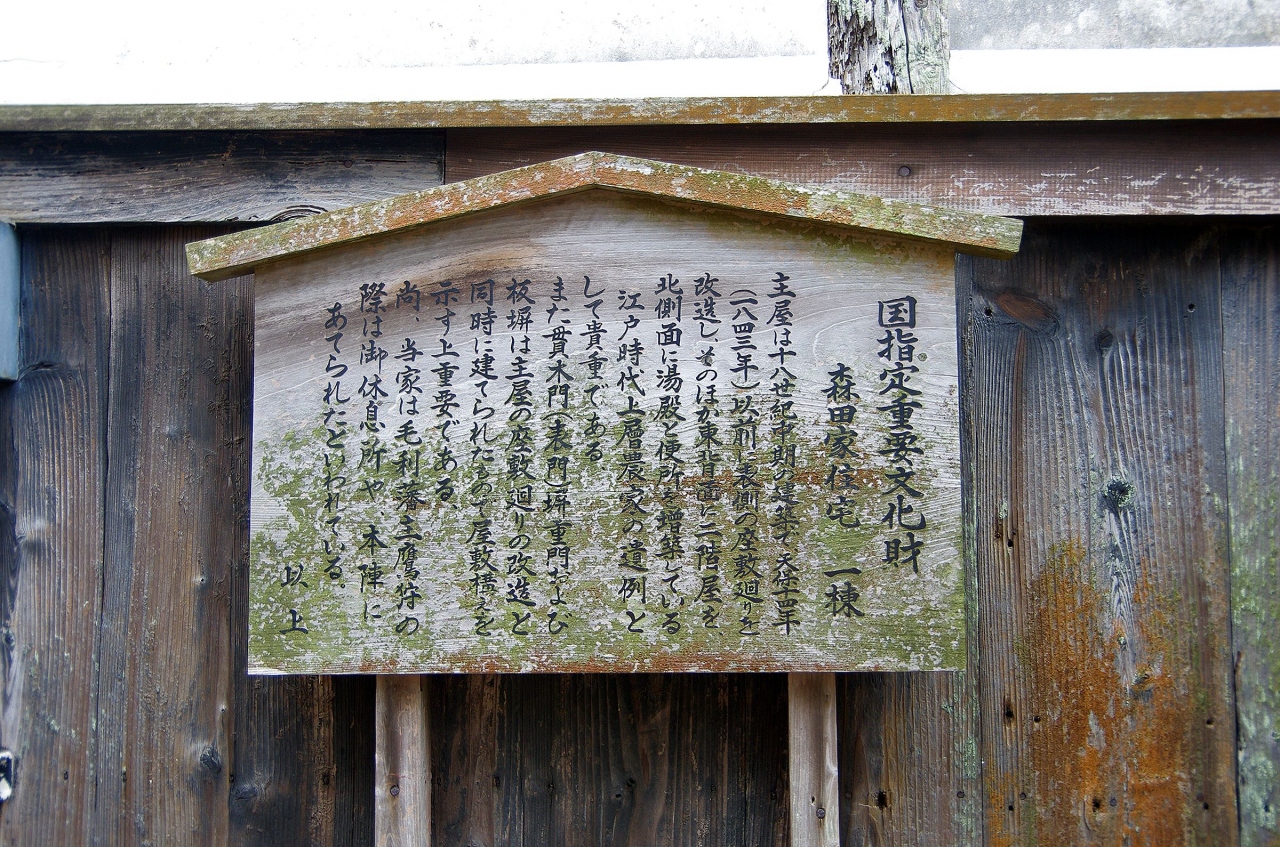 国指定重要文化財
森田家住宅 一棟
主屋は十八世紀中期の建築で天保十四年
(一八四三年)以前に表側の座敷廻りを
改造し、そのほか東背面に二階屋を、
北側面に湯殿と便所を増築している
江戸時代上層農家の遺例と
して貴重である
また貫木門(表門)塀重門および
板塀は主屋の座敷廻りの改造と
同時に建てられたもので屋敷構えを
示す上重要である、
尚、当家は毛利藩主鷹狩の
際は御休息所や、本陣に
あてられたといわれている。
以上